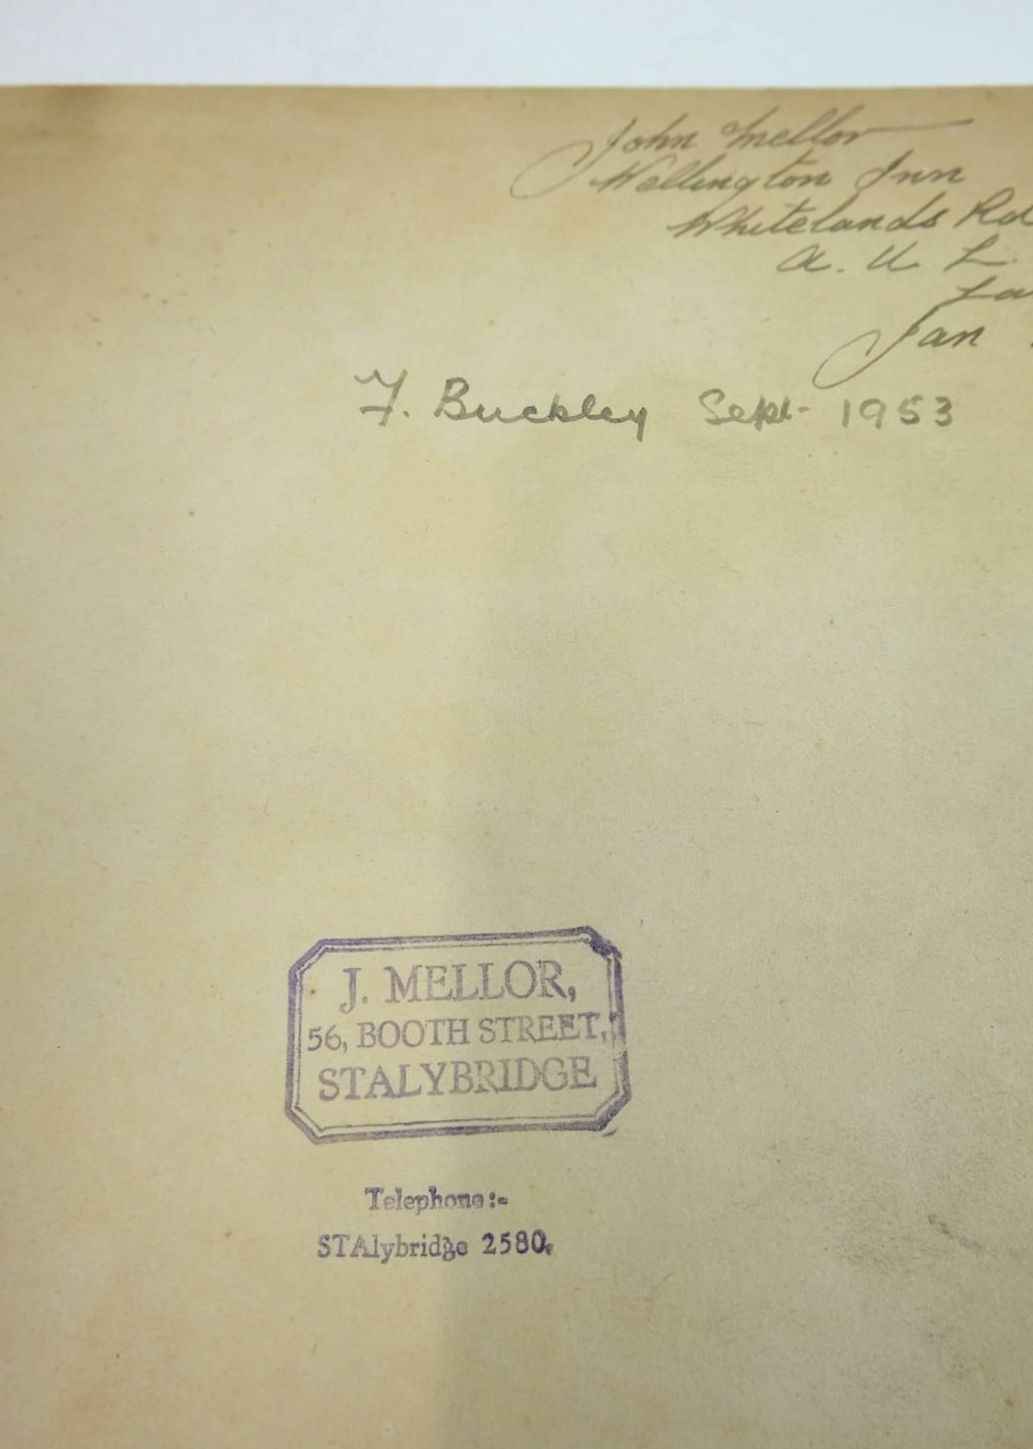 John Mellor
Wellington Inn
Whitelands Rd
A. U. L.
La
Jan
F. Buckley Sept- 1953
J. MELLOR,
56, BOOTH STREET,
STALYBRIDGE
Telephone:-
STAlybridge 2580.